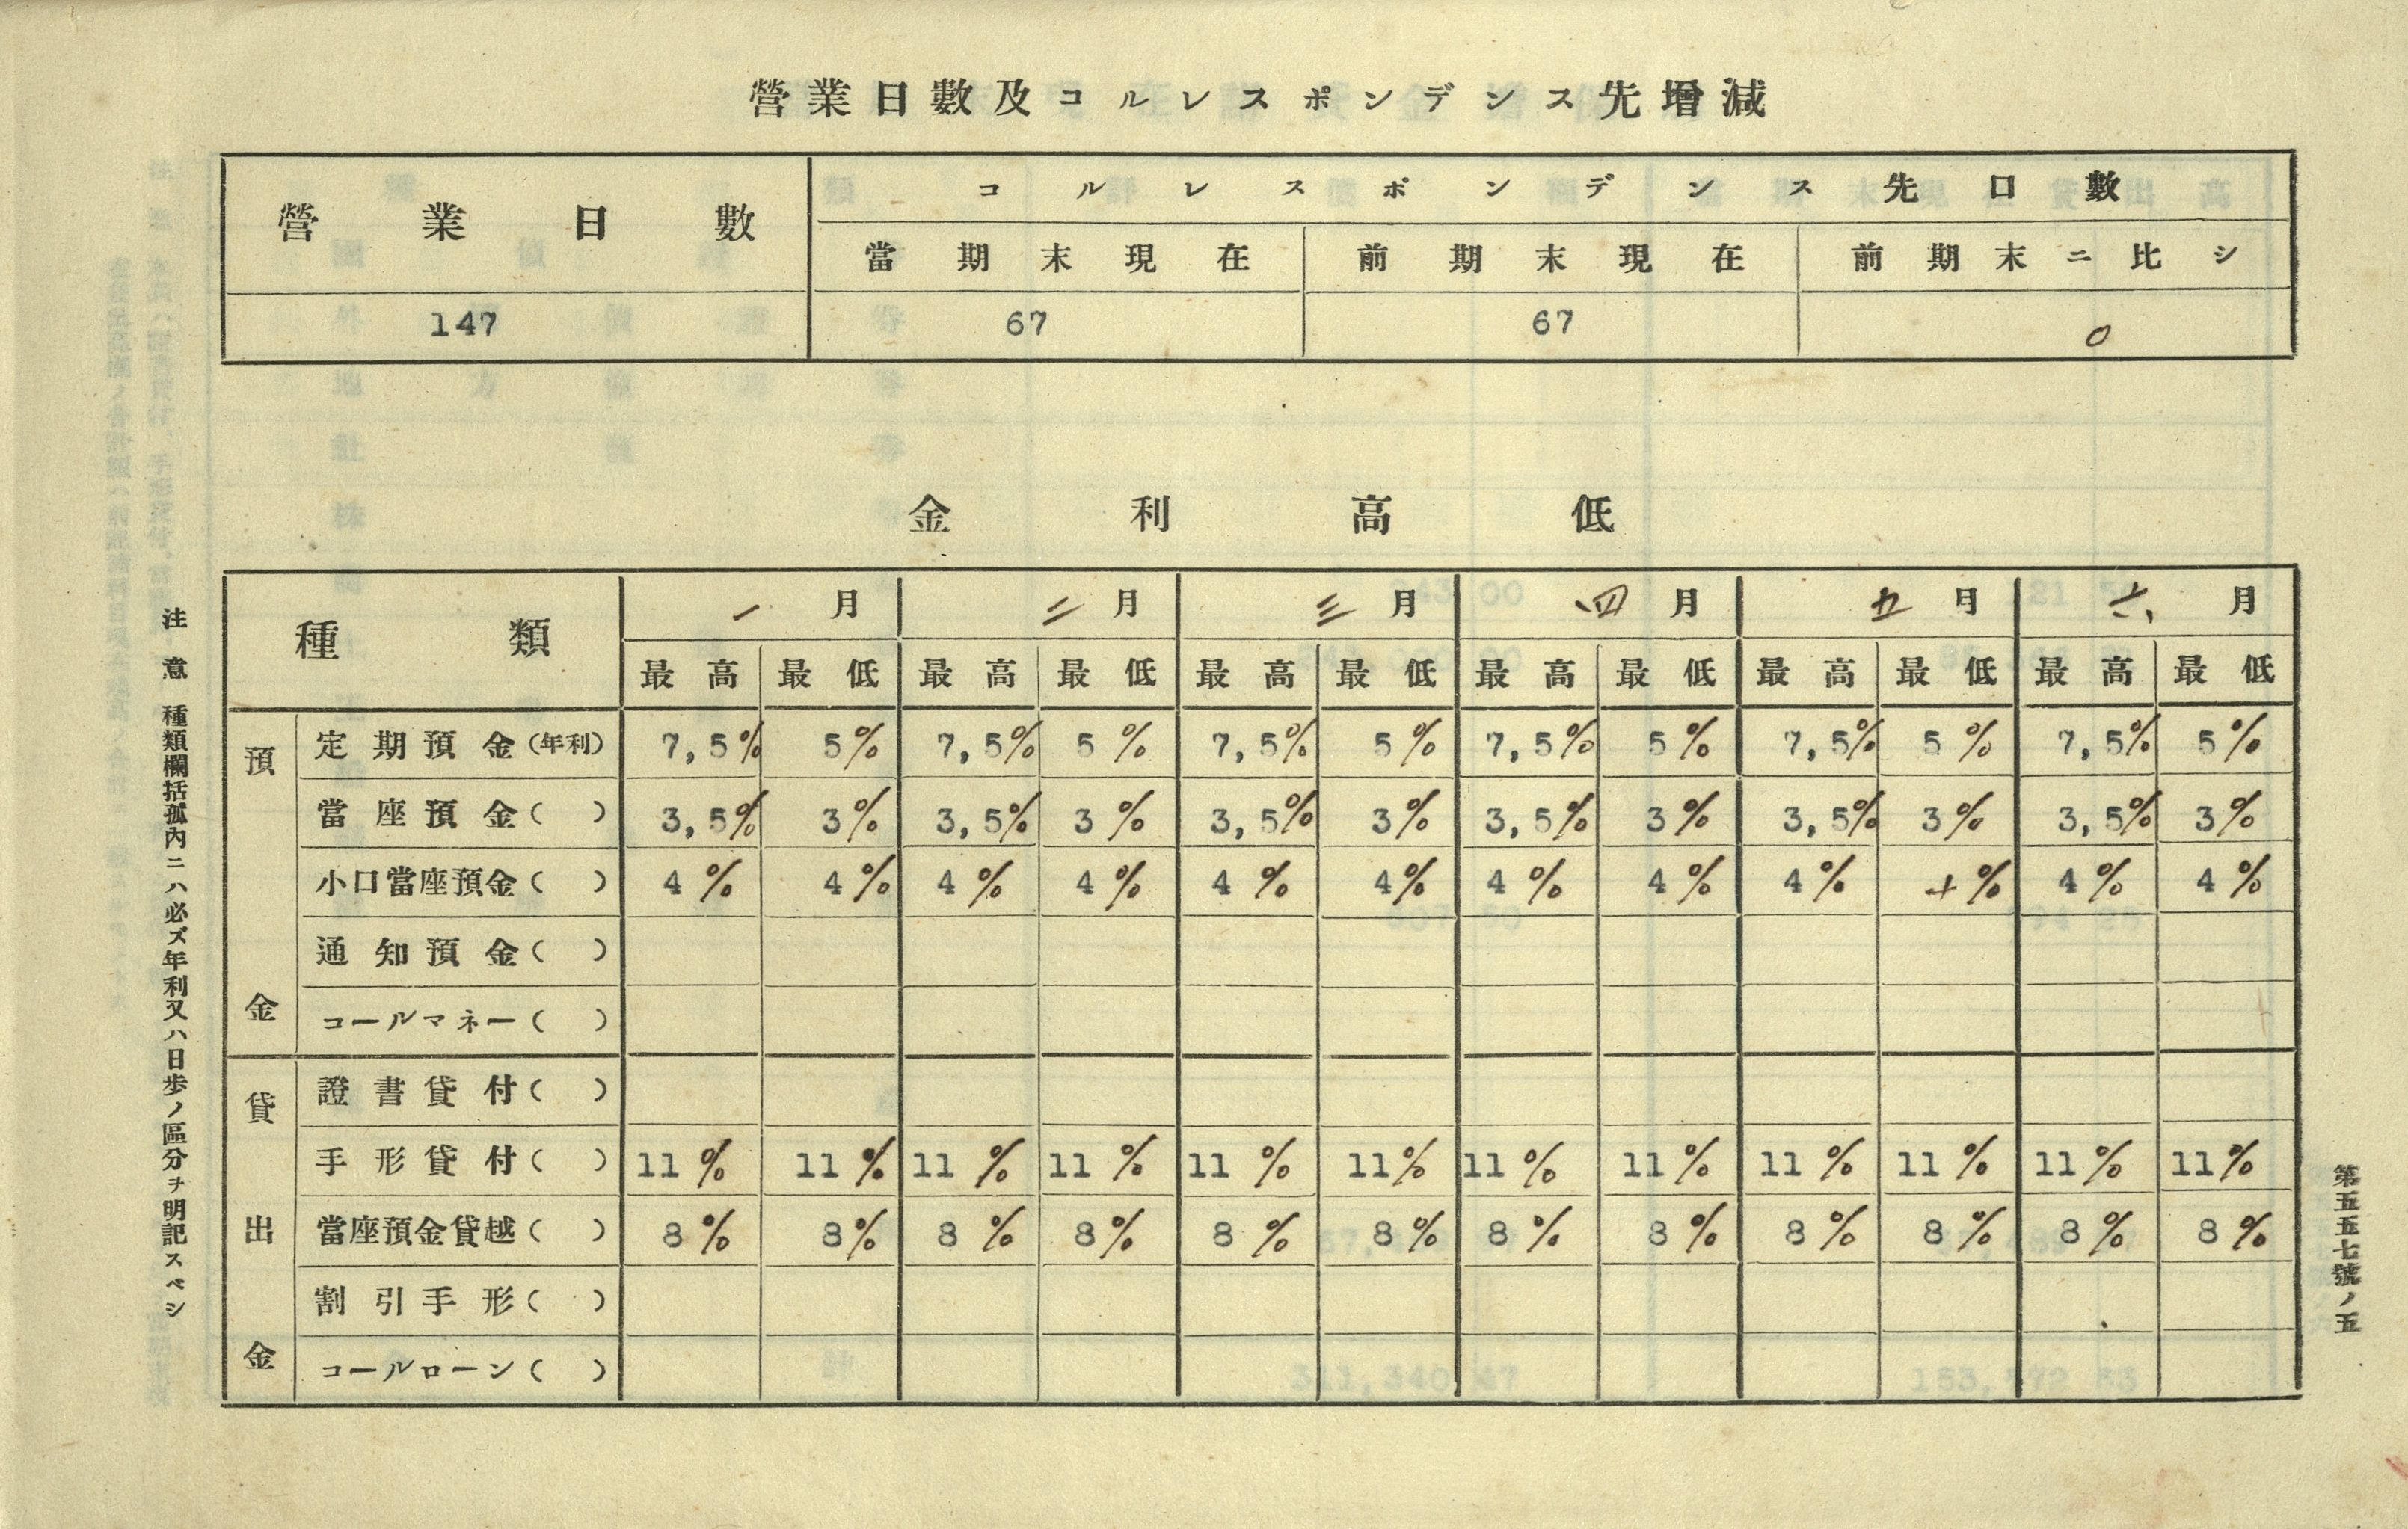 營業日數及コルレスポンデンス先增減
營業日數 コルレスポンデンス先口數
當期末現在 前期末現在 前期末ニ比シ
147 67 67 0
金利高低
種類 一月 二月 三月 四月 五月 六月
最高 最低 最高 最低 最高 最低 最高 最低 最高 最低 最高 最低
預金
定期預金(年利) 7,5% 5% 7,5% 5% 7,5% 5% 7,5% 5% 7,5% 5% 7,5% 5%
當座預金( ) 3,5% 3% 3,5% 3% 3,5% 3% 3,5% 3% 3,5% 3% 3,5% 3%
小口當座預金( ) 4% 4% 4% 4% 4% 4% 4% 4% 4% 4% 4% 4%
通知預金( )
コールマネー( )
貸出金
證書貸付( )
手形貸付( ) 11% 11% 11% 11% 11% 11% 11% 11% 11% 11% 11% 11%
當座預金貸越( ) 8% 8% 8% 8% 8% 8% 8% 8% 8% 8% 8% 8%
割引手形( )
コールローン( )
注意 種類欄括孤內ニハ必ズ年利又ハ日歩ノ區分ヲ明記スベシ
第五五七號ノ五